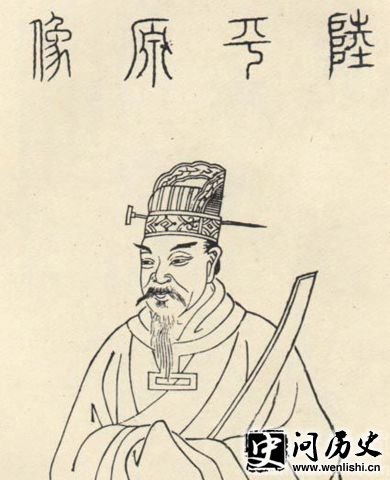 陸平原像
史问历史
www.wenlishi.cn